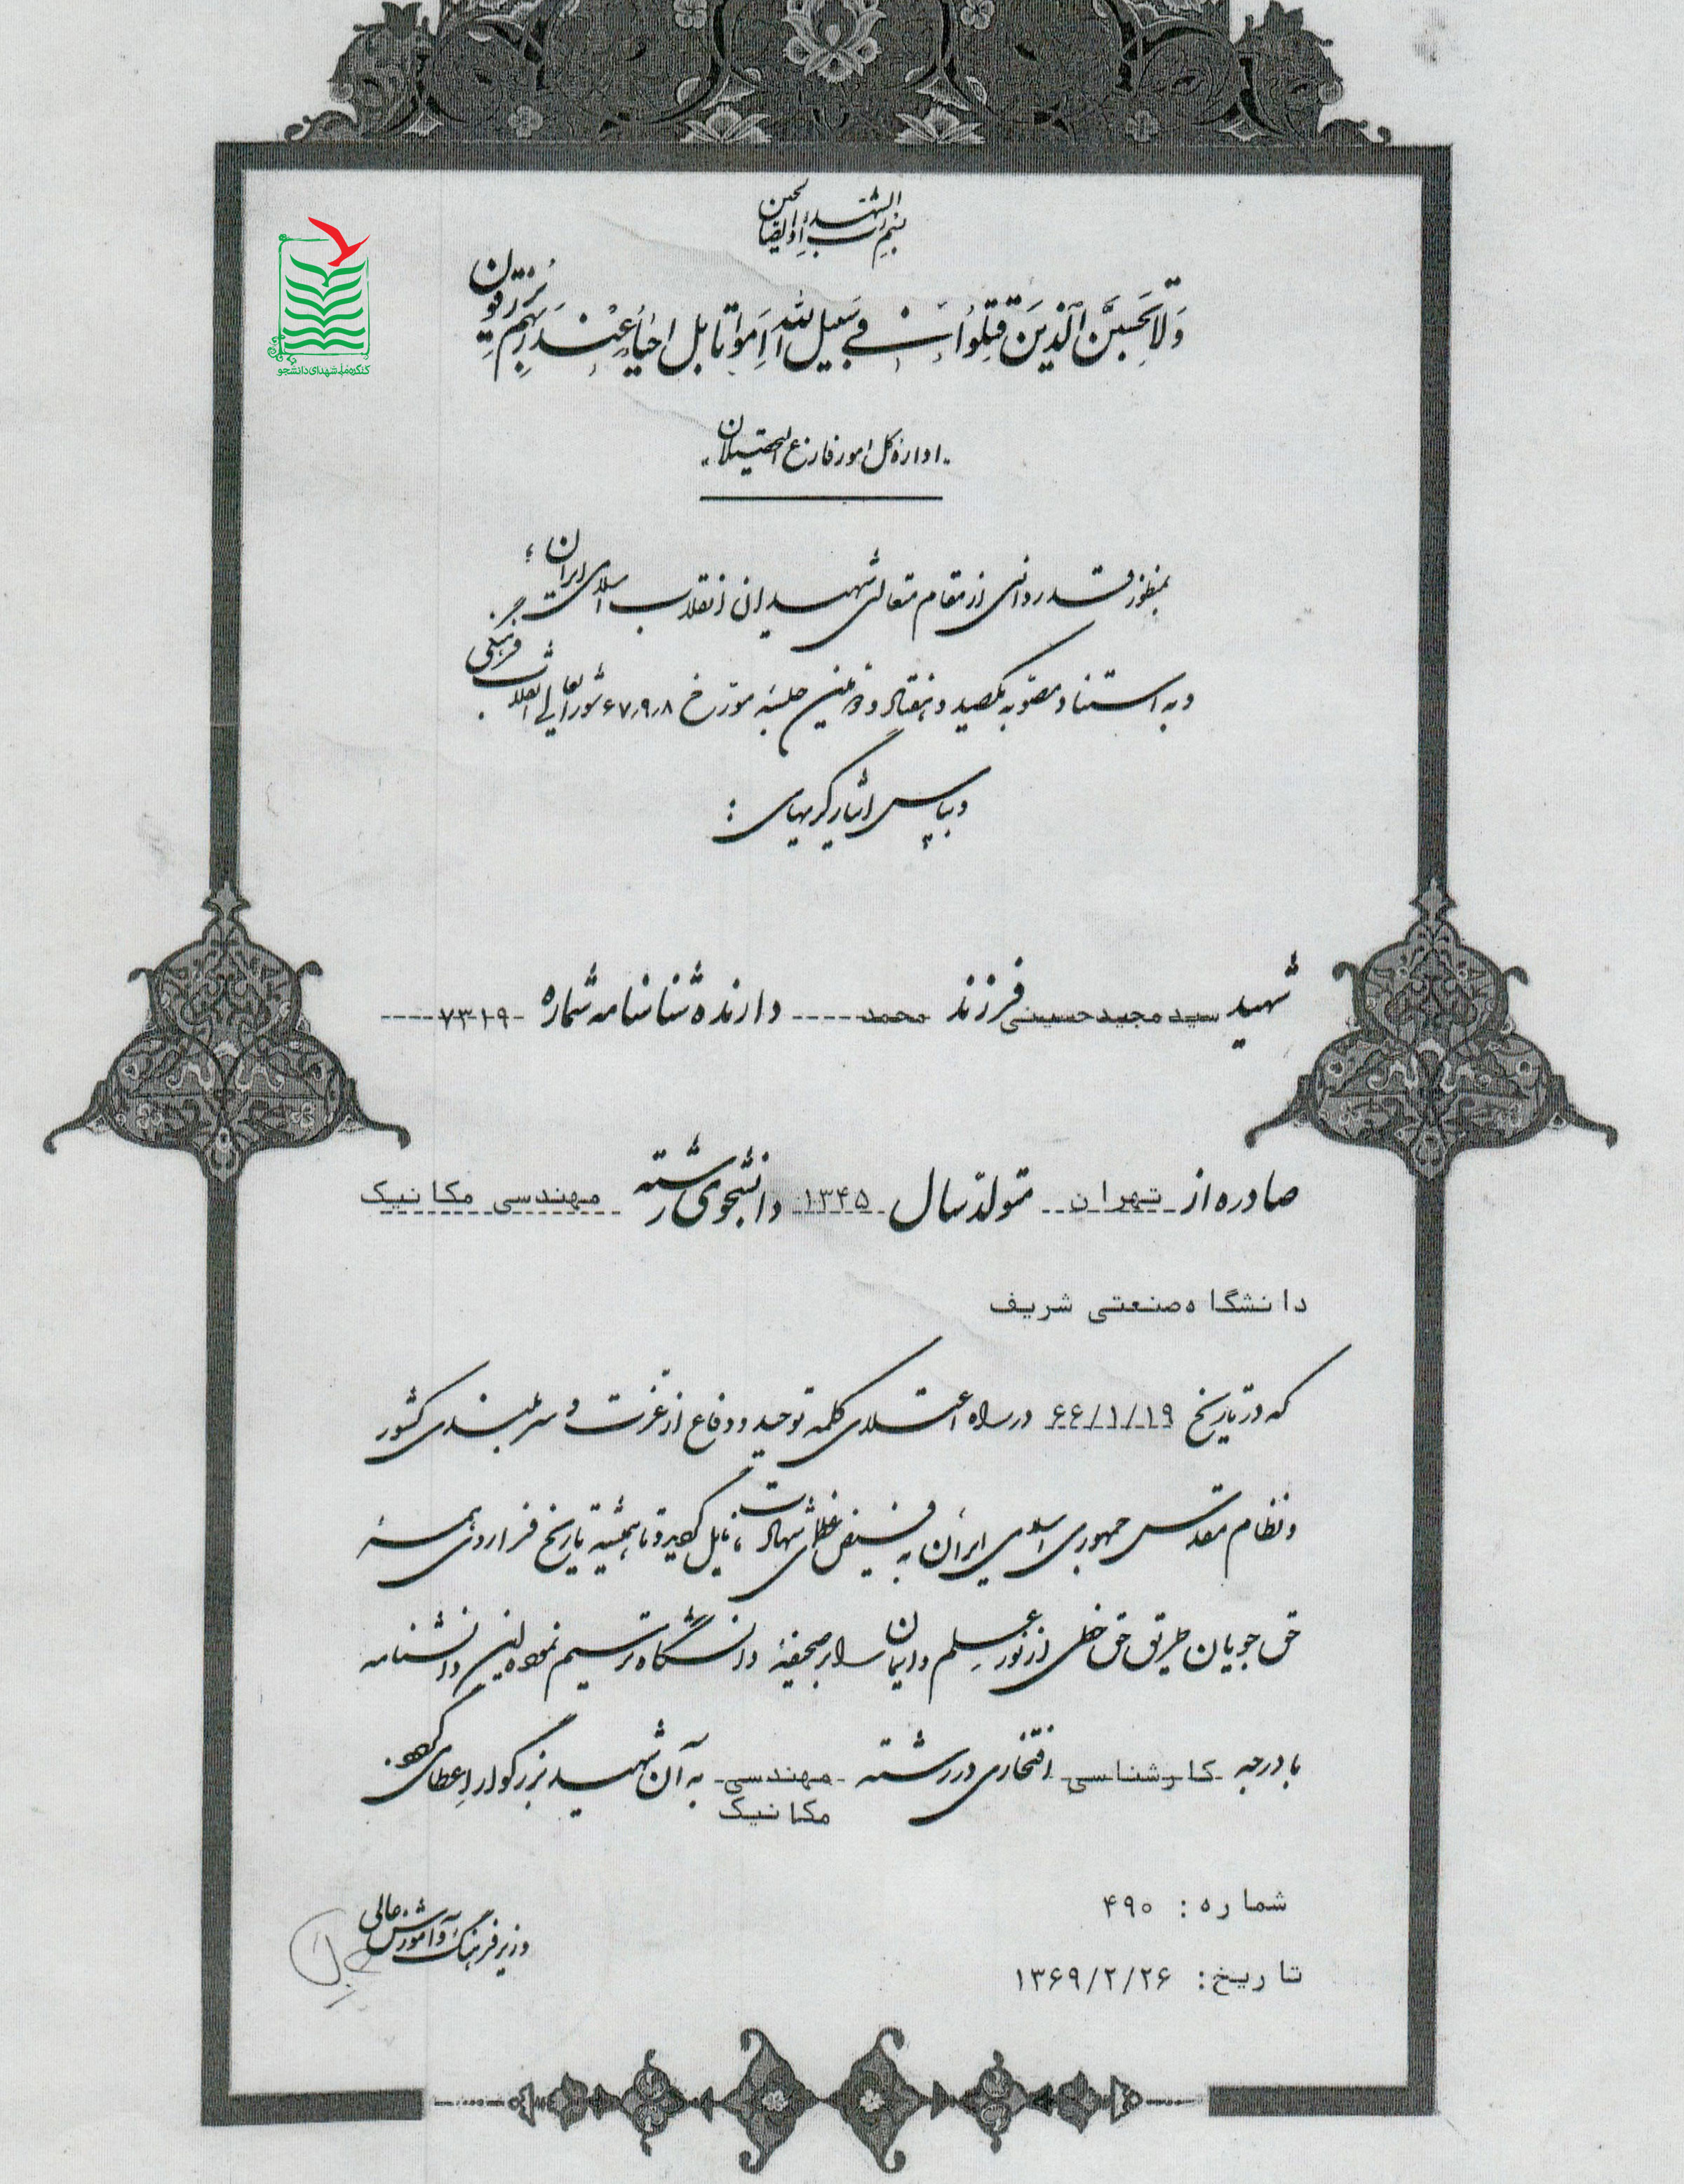 بسم رب الشهداء و الصالحین
وَلا تَحسَبَنَّ الَّذینَ قُتِلُوا فی سَبیلِ اللهِ اَمواتا بَل اَحیاءٌ عِندَ رَبِّهِم یُرزَقون
کنگره ملی شهدای دانشجو
اداره کل امور فارغ التحصیلان
بمنظور قدردانی از مقام متعالی شهیدان انقلاب اسلامی ایران؛
و به استناد مصوبه یکصید و هفتاد و دومین جلسه مورخ ۶۷٫۹٫۸ شورایعالی انقلاب فرهنگی
و بپاس ایثارگریهای :
شهید سید مجید حسینی فرزند محمد دارنده شناسنامه شماره ۷۳۱۹
صادره از تهران متولد سال ۱۳۴۵ دانشجوی رشته مهندسی مکانیک
دانشگاه صنعتی شریف
که در تاریخ ۶۶/۱/۱۹ در راه اعتلای کلمه توحید و دفاع از عزت و سربلندی کشور
و نظام مقدس جمهوری اسلامی ایران به فیض عظمای شهادت نایل گردید و تا همیشه تاریخ فراروی همهٔ
حق جویان طریق حق خطی از نور علم و ایمان را بر صحیفهٔ دانشگاه ترسیم نموده این دانشنامه
با درجه کارشناسی افتخاری در رشته مهندسی به آن شهید بزرگوار اعطا می گردد.
مکانیک
شماره : ۴۹۰
تاریخ : ۱۳۶۹/۲/۲۶
وزیر فرهنگ و آموزش عالی